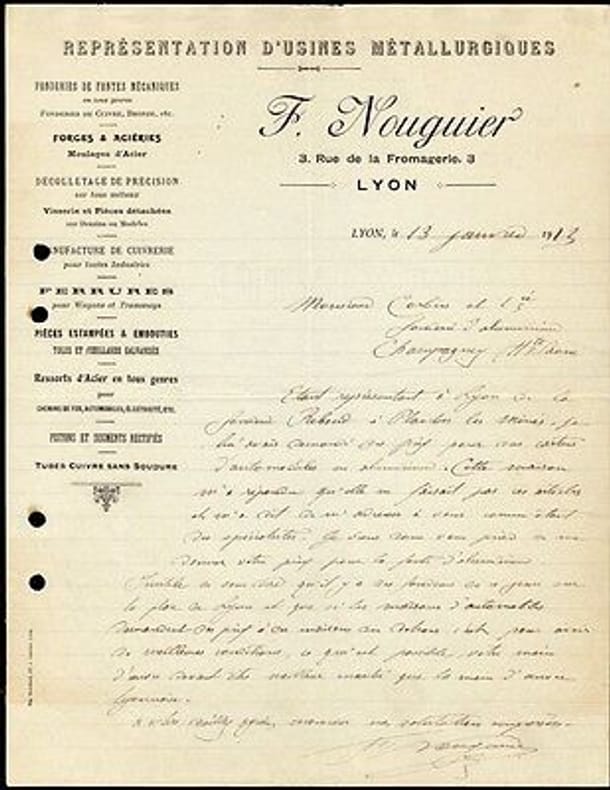 REPRÉSENTATION D'USINES MÉTALLURGIQUES
FONDERIES DE FONTES MÉCANIQUES
en tous genres
FONDERIES DE CUIVRE, BRONZE, etc.
FORGES & ACIÉRIES
Moulages d'Acier
DÉCOLLETAGE DE PRÉCISION
sur tous métaux
Visserie et Pièces détachées
sur Dessins ou Modèles
MANUFACTURE DE CUIVRERIE
pour toutes Industries
FERRURES
pour Wagons et Tramways
PIÈCES ESTAMPÉES & EMBOUTIES
TOLES ET FEUILLARDS GALVANISÉS
Ressorts d'Acier en tous genres
pour
CHEMINS DE FER, AUTOMOBILES, ÉLECTRICITÉ, ETC.
PISTONS ET SEGMENTS RECTIFIÉS
TUBES CUIVRE SANS SOUDURE
F. Nouguier
3, Rue de la Fromagerie, 3
LYON
LYON, le 13 janvier 1913
Monsieur et Cie
d'aluminium
Champagney Hte Saone
Etant représentant à Lyon de la
à Plancher les Mines, je
lui avais demandé des prix pour des carters
d'automobiles en aluminium. Cette maison
m'a répondu qu'elle ne faisait pas ces articles
et m'a dit de m'adresser à vous comme étant
des spécialistes. Je viens donc vous prier de me
donner votre prix pour la fonte d'aluminium.
qu'il y a des fondeurs de ce genre sur
la place de Lyon et que si les maisons d'automobiles
demandent des prix à des maisons du dehors c'est pour avoir
de meilleures conditions, ce qui est possible, votre main
d'œuvre devant être meilleur marché que la main d'œuvre
lyonnaise.
mes salutations empressées.
F. Nouguier